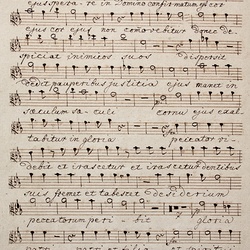 ejus spera- re in Domino confirmatum est cor
ejus cor ejus non comovebitur donec de-
spiciat inimicos suos Dispersit
Dedit pauperibus justitia ejus manet in
saeculum sa- culi cornu ejus exal-
tabitur in gloria peccator vi-
debit et irascetur et irascetur dentibus
suis fremet et tabescet desiderium
peccatorum peri- bit gloria